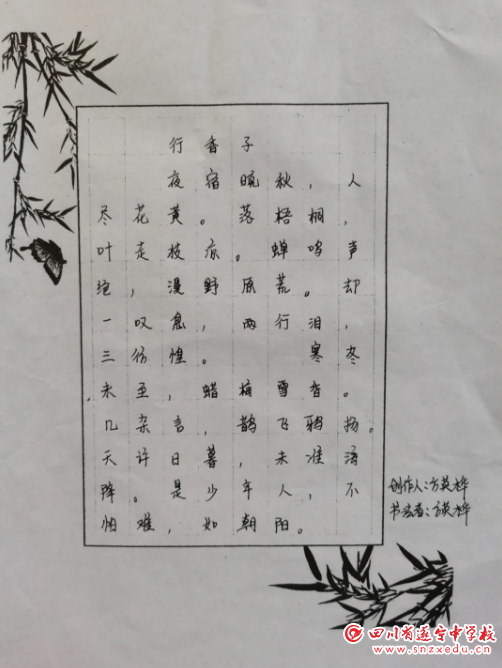 行香子
夜宿晚秋，人
尽花黄。落梧桐，
叶走枝凉。蝉鸣声
绝，漫野原荒。却
一叹息，两行泪，
三彷惶。寒冬
未至，蜡梅雪香。
几杂言，鹊飞鸦扬。
天许日暮，未准语
降。是少年人，不
怕难，如朝阳。
创作人：方英桦
书写者：方英桦
四川省遂宁中学校
www.snzxedu.cn